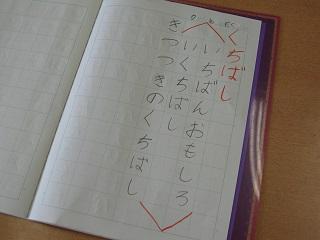 くちばし
いちばんおもしろ
いくちばし
きつつきのくちばし